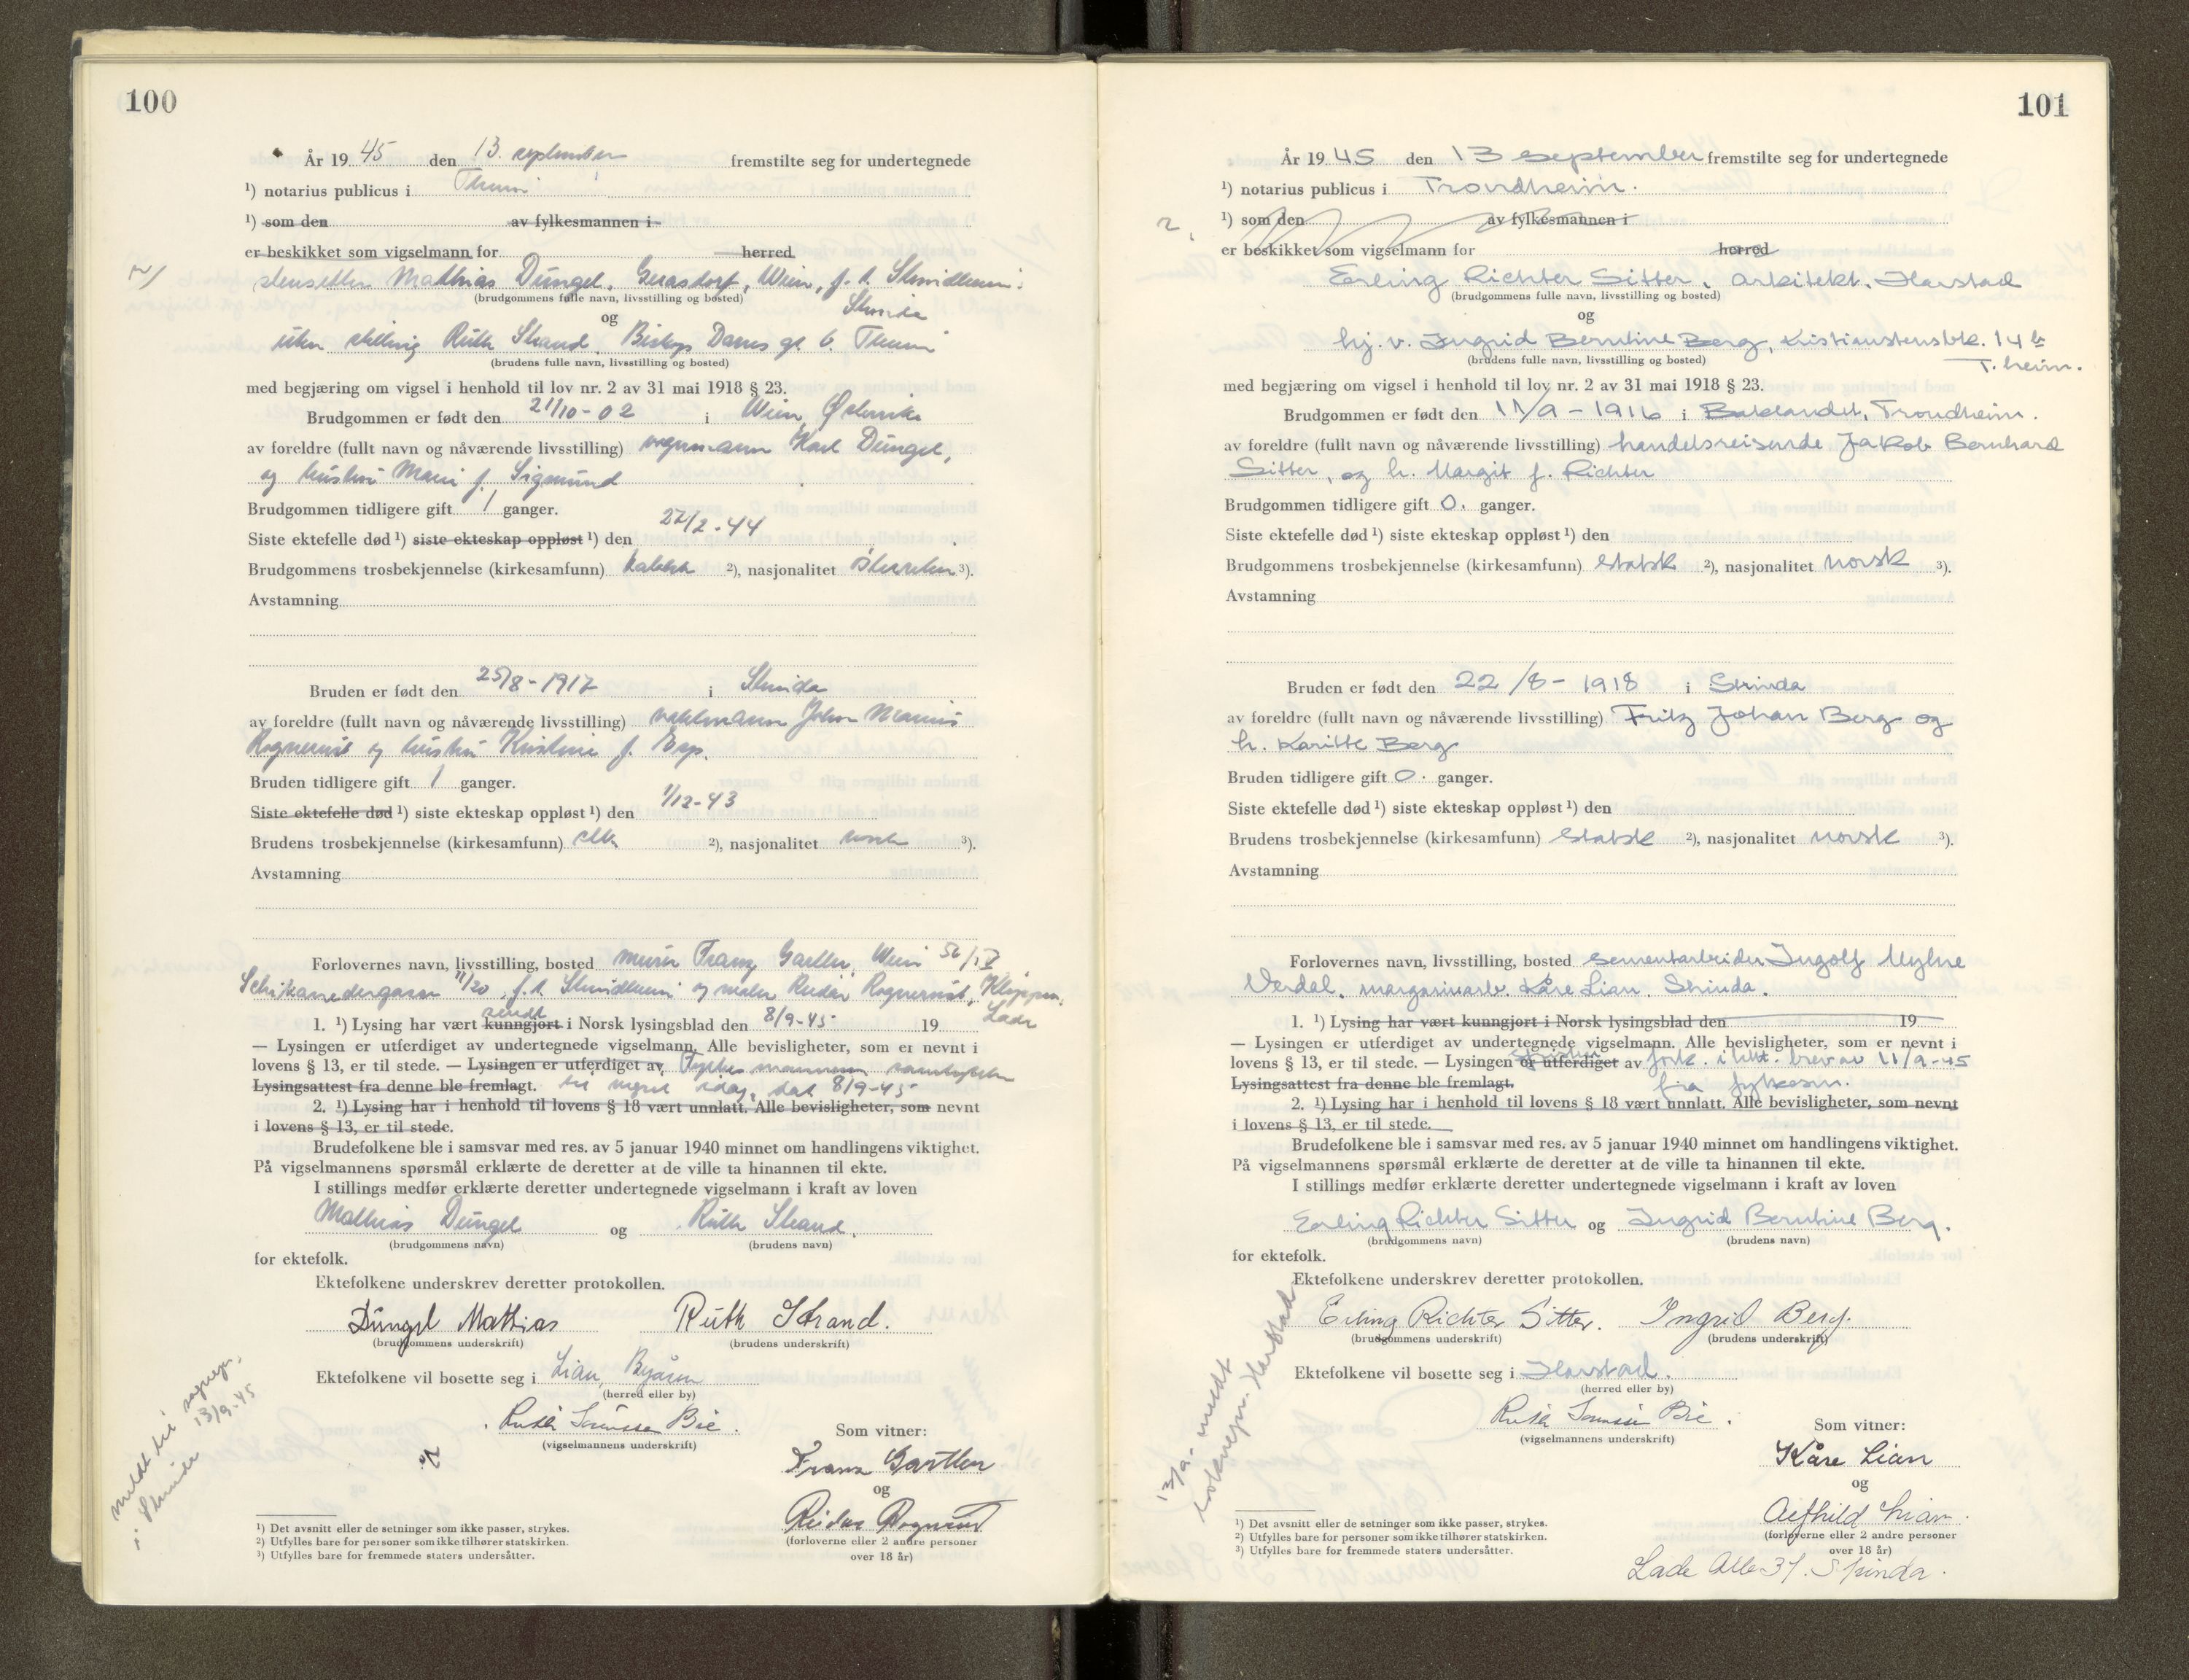 100
År 19 45 den 13. september fremstilte seg for undertegnede
¹) notarius publicus i Theim
¹) som den av fylkesmannen i
er beskikket som vigselmann for herred
Mathias Düngel, Gerasdorf, Wien, f. t.
(brudgommens fulle navn, livsstilling og bosted)
Strinda
og
uten stilling Ruth Strand, Biskop Darres gt 6.
(brudens fulle navn, livsstilling og bosted)
med begjæring om vigsel i henhold til lov nr. 2 av 31 mai 1918 § 23.
Brudgommen er født den 21/10-02 i Wien, Østerrike
av foreldre (fullt navn og nåværende livsstilling) vognmann Karl Düngel,
og hustru Marie f. Sigmund
Brudgommen tidligere gift 1 ganger.
Siste ektefelle død ¹) siste ekteskap oppløst ¹) den 27/2-44
Brudgommens trosbekjennelse (kirkesamfunn) katolsk ²), nasjonalitet ³).
Avstamning
Bruden er født den 25/8-1917 i Strinda
av foreldre (fullt navn og nåværende livsstilling) John Marius
og hustru Kristine f. Esp.
Bruden tidligere gift 1 ganger.
Siste ektefelle død ¹) siste ekteskap oppløst ¹) den 1/12-43
Brudens trosbekjennelse (kirkesamfunn) ²), nasjonalitet norsk ³).
Avstamning
Forlovernes navn, livsstilling, bosted murer Franz Gartler, Wien 56/IV
Schikanedergasse 11/20, f.t. og maler Reidar
Lade
1. ¹) Lysing har vært kunngjort sendt i Norsk lysingsblad den 8/9-45 19
— Lysingen er utferdiget av undertegnede vigselmann. Alle bevisligheter, som er nevnt i
lovens § 13, er til stede. — Lysingen er utferdiget av Fylkesmannens samtykke
Lysingsattest fra denne ble fremlagt. til vigsel idag, dat 8/9-45
2. ¹) Lysing har i henhold til lovens § 18 vært unnlatt. Alle bevisligheter, som nevnt
i lovens § 13, er til stede.
Brudefolkene ble i samsvar med res. av 5 januar 1940 minnet om handlingens viktighet.
På vigselmannens spørsmål erklærte de deretter at de ville ta hinannen til ekte.
I stillings medfør erklærte deretter undertegnede vigselmann i kraft av loven
Mathias Düngel og Ruth Strand.
(brudgommens navn) (brudens navn)
for ektefolk.
Ektefolkene underskrev deretter protokollen.
Düngel Mathias Ruth Strand.
(brudgommens underskrift) (brudens underskrift)
Ektefolkene vil bosette seg i Lian, Byåsen
(herred eller by)
Ruth Bie.
(vigselmannens underskrift)
Som vitner:
Franz Gartler
og
Reidar
(forloverne eller 2 andre personer
over 18 år)
meldt til
i Strinda 13/9-45
¹) Det avsnitt eller de setninger som ikke passer, strykes.
²) Utfylles bare for personer som ikke tilhører statskirken.
³) Utfylles bare for fremmede staters undersåtter.
101
År 19 45 den 13 september fremstilte seg for undertegnede
¹) notarius publicus i Trondheim.
2.
¹) som den av fylkesmannen i
er beskikket som vigselmann for herred
Erling Richter Sitter, arkitekt, Harstad
(brudgommens fulle navn, livsstilling og bosted)
og
hj. v. Ingrid Berntine Berg, Kristianstensbk. 14 b
(brudens fulle navn, livsstilling og bosted) T.heim.
med begjæring om vigsel i henhold til lov nr. 2 av 31 mai 1918 § 23.
Brudgommen er født den 11/9-1916 i Baklandet, Trondheim.
av foreldre (fullt navn og nåværende livsstilling) handelsreisende Jakob Bernhard
Sitter, og h. Margit f. Richter
Brudgommen tidligere gift 0. ganger.
Siste ektefelle død ¹) siste ekteskap oppløst ¹) den
Brudgommens trosbekjennelse (kirkesamfunn) statsk ²), nasjonalitet norsk ³).
Avstamning
Bruden er født den 22/8-1918 i Strinda
av foreldre (fullt navn og nåværende livsstilling) Fritz Johan Berg og
h. Karitte Berg
Bruden tidligere gift 0. ganger.
Siste ektefelle død ¹) siste ekteskap oppløst ¹) den
Brudens trosbekjennelse (kirkesamfunn) statsk ²), nasjonalitet norsk ³).
Avstamning
Forlovernes navn, livsstilling, bosted sementarbeider Ingolf Myhre
Verdal, margarinarb. Kåre Lian, Strinda.
1. ¹) Lysing har vært kunngjort i Norsk lysingsblad den 19
— Lysingen er utferdiget av undertegnede vigselmann. Alle bevisligheter, som er nevnt i
lovens § 13, er til stede. — Lysingen er utferdiget av brev av 11/9-45
Lysingsattest fra denne ble fremlagt. fra fylkesm.
2. ¹) Lysing har i henhold til lovens § 18 vært unnlatt. Alle bevisligheter, som nevnt
i lovens § 13, er til stede.
Brudefolkene ble i samsvar med res. av 5 januar 1940 minnet om handlingens viktighet.
På vigselmannens spørsmål erklærte de deretter at de ville ta hinannen til ekte.
I stillings medfør erklærte deretter undertegnede vigselmann i kraft av loven
Erling Richter Sitter og Ingrid Berntine Berg.
(brudgommens navn) (brudens navn)
for ektefolk.
Ektefolkene underskrev deretter protokollen.
Erling Richter Sitter. Ingrid Berg.
(brudgommens underskrift) (brudens underskrift)
Ektefolkene vil bosette seg i Harstad.
(herred eller by)
Ruth Bie.
(vigselmannens underskrift)
Som vitner:
Kåre Lian
og
Alfhild Lian.
(forloverne eller 2 andre personer
over 18 år)
Lade Alle 37. Strinda.
13/9- meldt
Harstad
¹) Det avsnitt eller de setninger som ikke passer, strykes.
²) Utfylles bare for personer som ikke tilhører statskirken.
³) Utfylles bare for fremmede staters undersåtter.